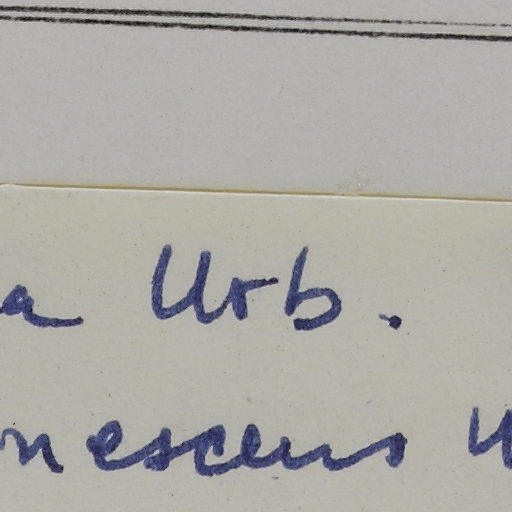 a Urb.
nescens